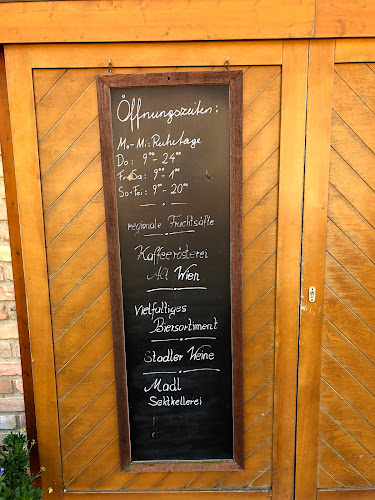 Öffnungszeiten:
Mo-Mi: Ruhetage
Do: 9⁰⁰-24⁰⁰
Fr-Sa: 9⁰⁰-1⁰⁰
So+Fei: 9⁰⁰-20⁰⁰
regionale Fruchtsäfte
Kaffeerösterei
Alt Wien
Vielfältiges
Biersortiment
Stadler Weine
Madl
Sektkellerei